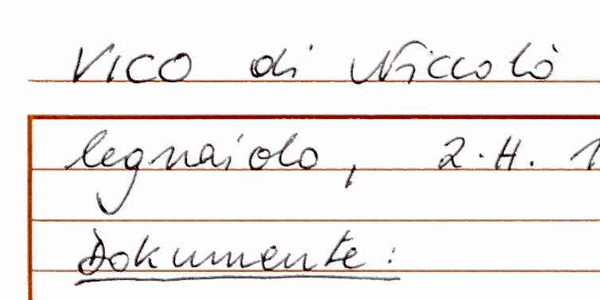 Vico di Niccolò
legnaiolo, 2.H. 1
Dokumente: